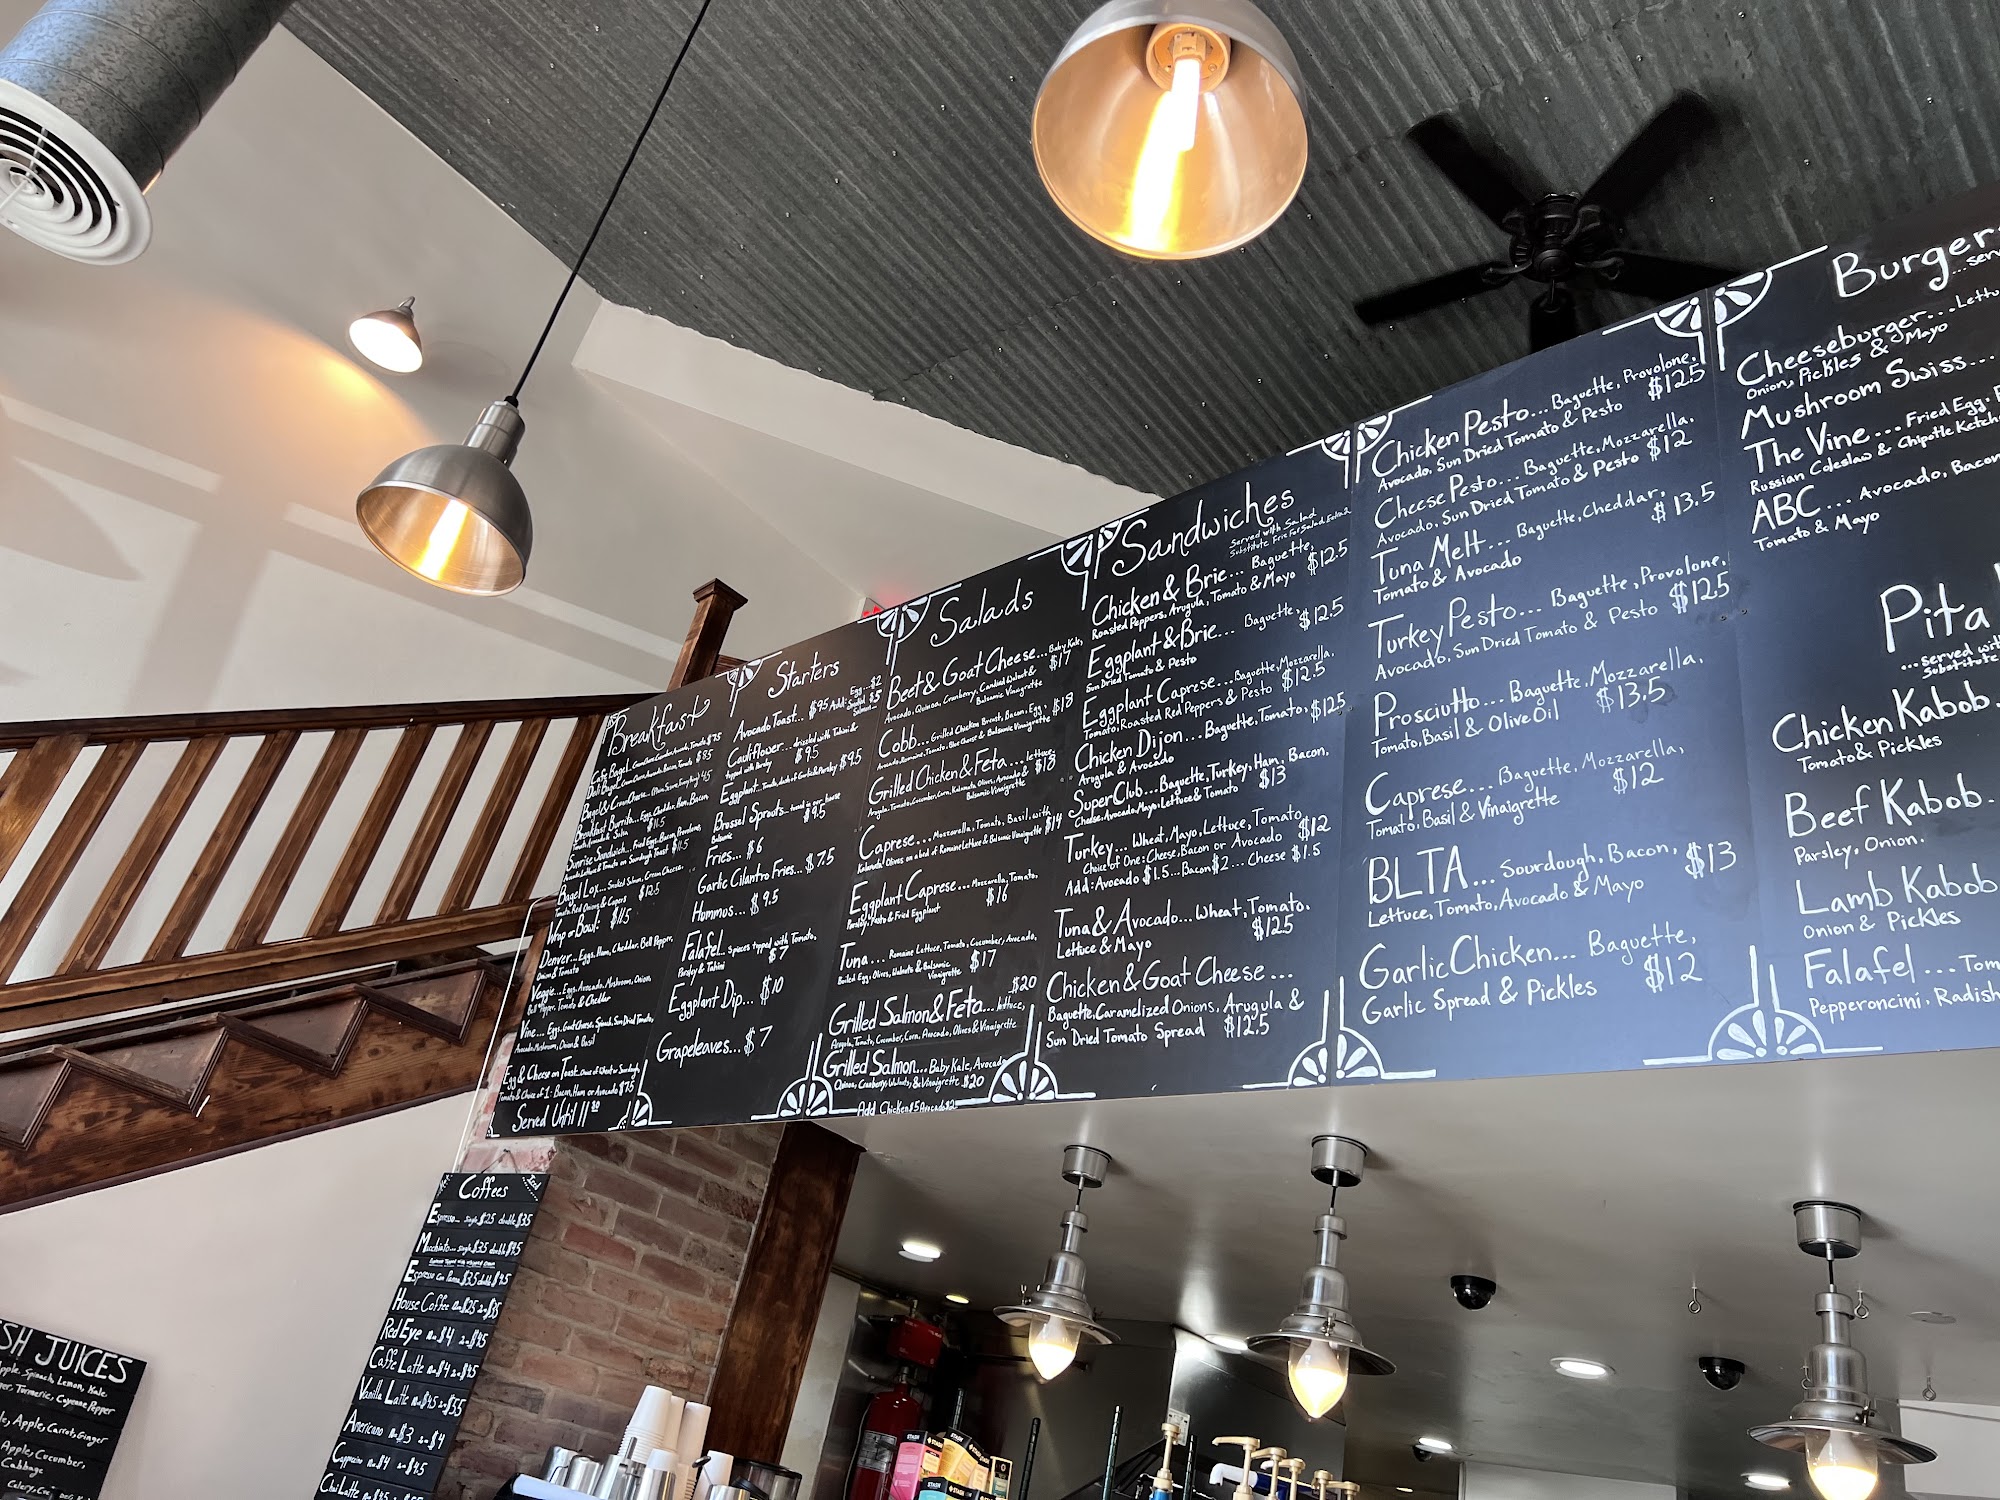 Breakfast
Cafe Bagel...
Deli Bagel...
Bagel & Cream Cheese...
Breakfast Burrito... Eggs, Cheddar, Ham, Bacon,
Tomato, Avocado & Salsa $11.5
Sunrise Sandwich... Fried Eggs, Bacon, Provolone,
Avocado, Lettuce & Tomato on Sourdough Toast $11.5
Bagel Lox... Smoked Salmon, Cream Cheese,
Tomato, Red Onions & Capers $12.5
Wrap or Bowl: $11.5
Denver... Eggs, Ham, Cheddar, Bell Pepper,
Onion & Tomato
Veggie... Eggs, Avocado, Mushroom, Onion,
Bell Pepper, Tomato & Cheddar
Vine... Eggs, Goat Cheese, Spinach, Sun Dried Tomato,
Avocado, Mushroom, Onion & Basil
Egg & Cheese on Toast... Choice of Wheat or Sourdough,
Tomato & Choice of 1: Bacon, Ham or Avocado $7.5
Served Until 11:30
Starters
Avocado Toast... $9.5 Add: Egg...$2
Smoked Salmon...$5
Cauliflower... drizzled with Tahini &
topped with Parsley $9.5
Eggplant... Tomato, dash of Garlic & Parsley $9.5
Brussel Sprouts... tossed in our house
Balsamic $9.5
Fries... $6
Garlic Cilantro Fries... $7.5
Hommos... $9.5
Falafel... 5 pieces topped with Tomato,
Parsley & Tahini $7
Eggplant Dip... $10
Grapeleaves... $7
Salads
Beet & Goat Cheese... Baby Kale,
Avocado, Quinoa, Cranberry, Candied Walnut & $17
Balsamic Vinaigrette
Cobb... Grilled Chicken Breast, Bacon, Egg, $18
Avocado, Romaine, Tomato, Blue Cheese & Balsamic Vinaigrette
Grilled Chicken & Feta... lettuce,
Arugula, Tomato, Cucumber, Corn, Kalamata Olives, Avocado & $18
Balsamic Vinaigrette
Caprese... Mozzarella, Tomato, Basil, with
Kalamata Olives on a bed of Romaine Lettuce & Balsamic Vinaigrette $14
Eggplant Caprese... Mozzarella, Tomato,
Parsley, Pesto & Fried Eggplant $16
Tuna... Romaine Lettuce, Tomato, Cucumber, Avocado,
Boiled Egg, Olives, Walnuts & Balsamic
Vinaigrette $17
Grilled Salmon & Feta... lettuce, $20
Arugula, Tomato, Cucumber, Corn, Avocado, Olives & Vinaigrette
Grilled Salmon... Baby Kale, Avocado
Quinoa, Cranberry, Walnuts, & Vinaigrette $20
Add Chicken $5 Avocado $2
Sandwiches
Served with Salad
Substitute Fries For Salad Extra 2
Chicken & Brie... Baguette,
Roasted Peppers, Arugula, Tomato & Mayo $12.5
Eggplant & Brie... Baguette,
Sun Dried Tomato & Pesto $12.5
Eggplant Caprese... Baguette, Mozzarella,
Tomato, Roasted Red Peppers & Pesto $12.5
Chicken Dijon... Baguette, Tomato, $12.5
Arugula & Avocado
Super Club... Baguette, Turkey, Ham, Bacon,
Cheese, Avocado, Mayo, Lettuce & Tomato $13
Turkey... Wheat, Mayo, Lettuce, Tomato,
Choice of One: Cheese, Bacon or Avocado $12
Add: Avocado $1.5... Bacon $2... Cheese $1.5
Tuna & Avocado... Wheat, Tomato,
Lettuce & Mayo $12.5
Chicken & Goat Cheese...
Baguette, Caramelized Onions, Arugula &
Sun Dried Tomato Spread $12.5
Chicken Pesto... Baguette, Provolone,
Avocado, Sun Dried Tomato & Pesto $12.5
Cheese Pesto... Baguette, Mozzarella,
Avocado, Sun Dried Tomato & Pesto $12
Tuna Melt... Baguette, Cheddar,
Tomato & Avocado $13.5
Turkey Pesto... Baguette, Provolone,
Avocado, Sun Dried Tomato & Pesto $12.5
Prosciutto... Baguette, Mozzarella,
Tomato, Basil & Olive Oil $13.5
Caprese... Baguette, Mozzarella,
Tomato, Basil & Vinaigrette $12
BLTA... Sourdough, Bacon,
Lettuce, Tomato, Avocado & Mayo $13
Garlic Chicken... Baguette,
Garlic Spread & Pickles $12
Burgers
...serv
Cheeseburger... Lettu
Onion, Pickles & Mayo
Mushroom Swiss...
The Vine... Fried Egg,
Russian Coleslaw & Chipotle Ketch
ABC.... Avocado, Bacon
Tomato & Mayo
Pita
...served with
Substitute
Chicken Kabob.
Tomato & Pickles
Beef Kabob.
Parsley, Onion.
Lamb Kabob
Onion & Pickles
Falafel... Tom
Pepperoncini, Radish
Coffees
Iced
Espresso... single $2.5 double $3.5
Macchiato... single $3.5 double $4.5
Espresso Topped with whipped cream
Espresso Con Panna $3.5 double $4.5
House Coffee $2.5 $3.5
Red Eye $4 $4.5
Caffe Latte $4 $4.5
Vanilla Latte $4.5 $5.5
Americano $3 $4
Cappuccino $4 $4.5
Chai Latte $4.5
SH JUICES
pple, Spinach, Lemon, Kale
ger, Turmeric, Cayenne Pepper
le, Apple, Carrot, Ginger
Apple, Cucumber,
Cabbage
Celery, Cuc
STASH
STASH
STASH
STASH